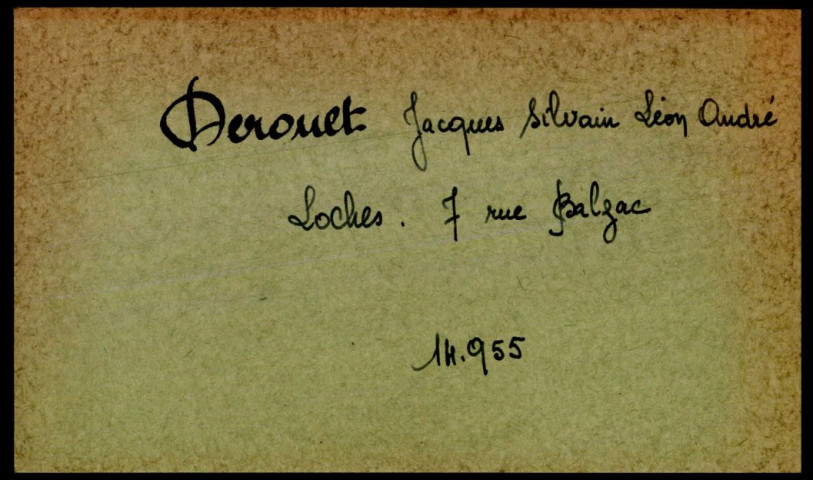 Derouet Jacques Silvain Léon André
Loches. 7 rue Balzac
14.955